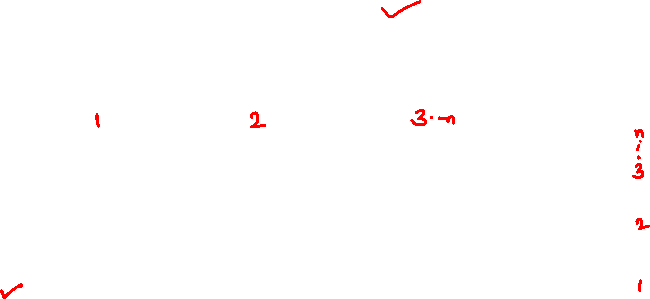 1 2 3.n
n
:
3
2
1